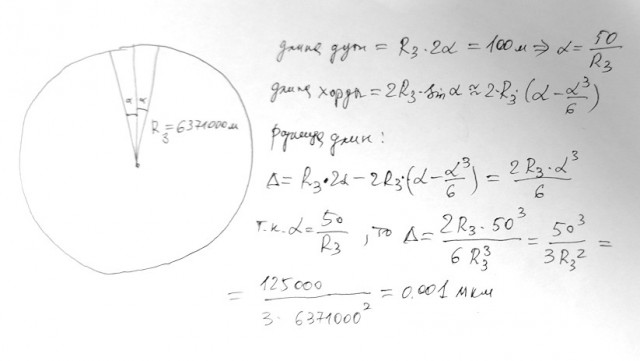 α α
R₃=6371000м
длина дуги = R₃·2α = 100м ⇒ α = 50/R₃
длина хорды = 2R₃·sinα ≈ 2·R₃·(α − α³/6)
Разница длин:
Δ = R₃·2α − 2R₃·(α − α³/6) = 2R₃·α³/6
т.к. α = 50/R₃, то Δ = 2R₃·50³/6R₃³ = 50³/3R₃² =
= 125000/3·6371000² = 0.001 мкм